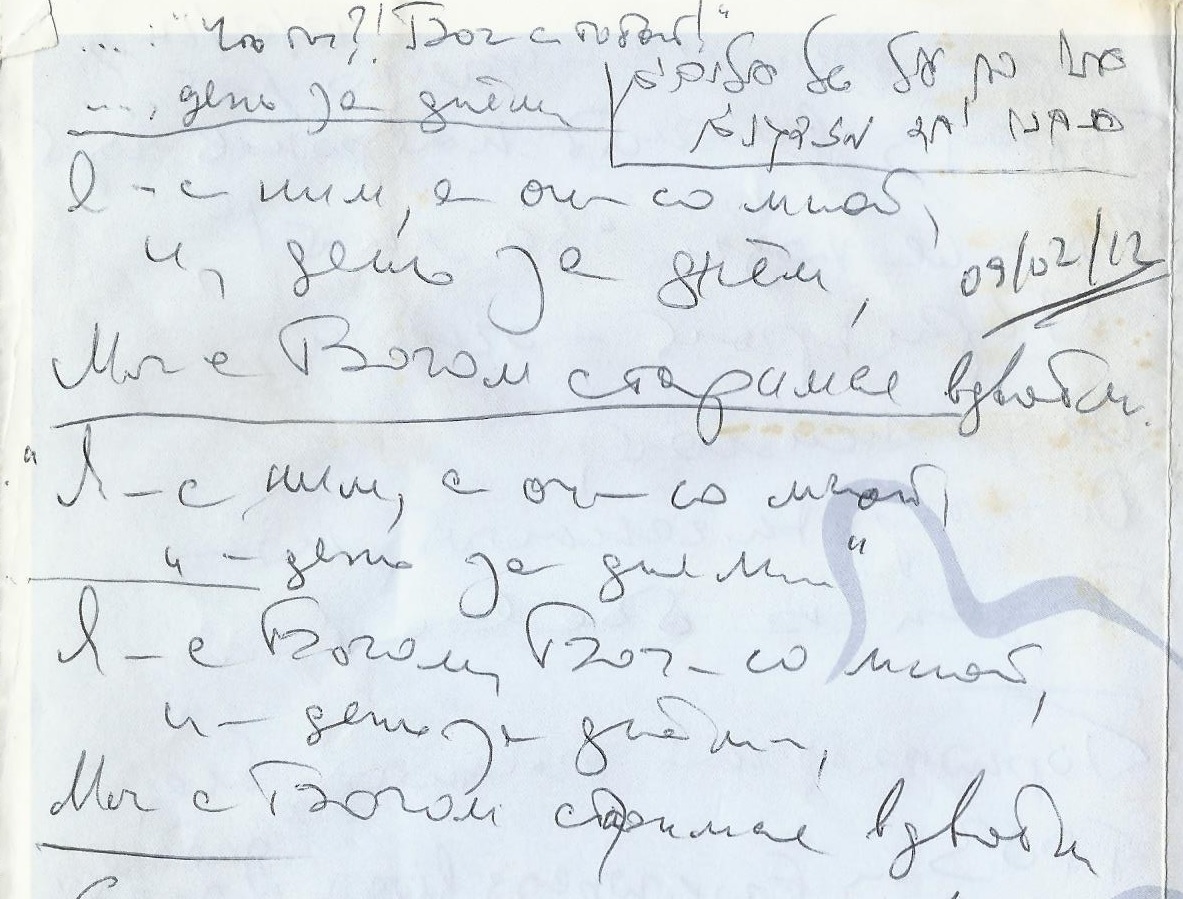 ... "Что ты?! Бог с тобой!"
..., день за днём
Я - с ним, а он со мной,
и, день за днём,
09/02/12
Мы с Богом старимся вдвоём.
"Я - с ним, а он - со мной,
и - день за днём"
Я - с Богом, Бог - со мной,
и - день за днём,
Мы с Богом старимся вдвоём